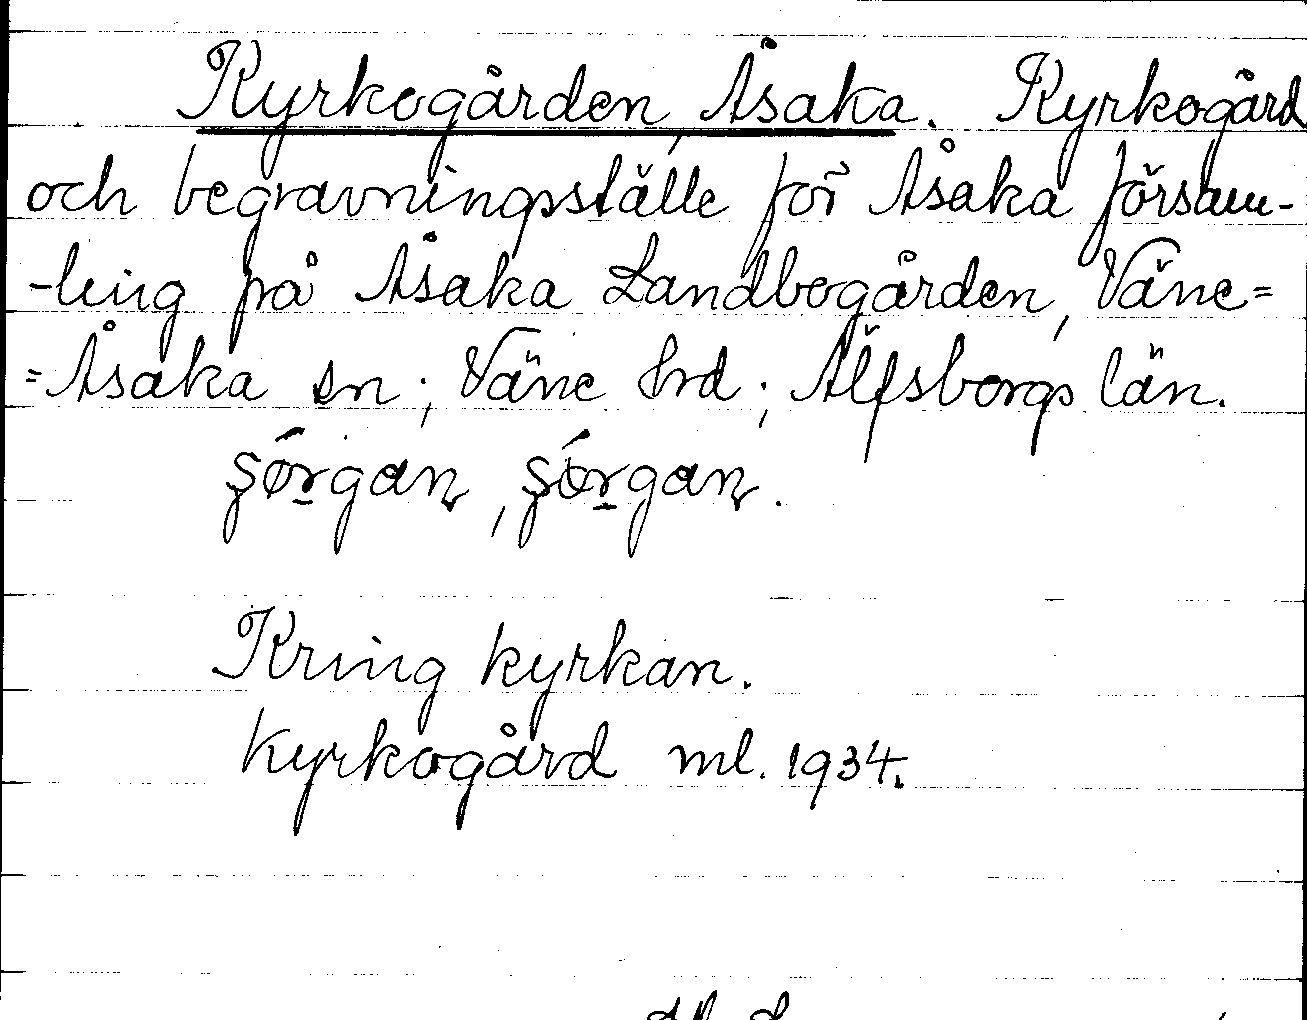 Kyrkogården, Åsaka. Kyrkogård
och begravningsställe för Åsaka försam-
-ling på Åsaka Landbogården, Väne=
=Åsaka sn; Väne hrd; Älfsborgs län.
Kring kyrkan.
Kyrkogård ml. 1934.